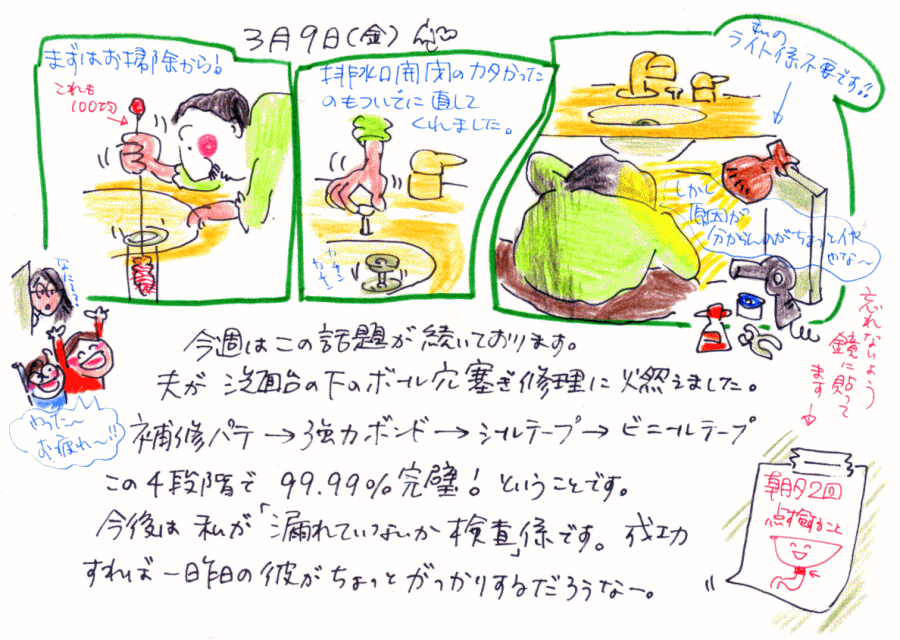 3月9日(金)
まずはお掃除から!
これも
100均
排水口開閉のカタかった
のもついでに直して
くれました。
私の
ライト係不要です!!
しかし
原因が
分からんのがちょっとイヤ
やな〜
やった〜
お疲れ〜!!
今週はこの話題が続いております。
夫が洗面台の下のボール穴塞ぎ修理に燃えました。
補修パテ→強力ボンド→シールテープ→ビニールテープ
この4段階で99.99%完璧!ということです。
今後は私が「漏れていないか検査」係です。成功
すれば一昨日の彼がちょっとがっかりするだろうなー。
忘れないよう
鏡に貼って
ます→
朝夕2回
点検すること